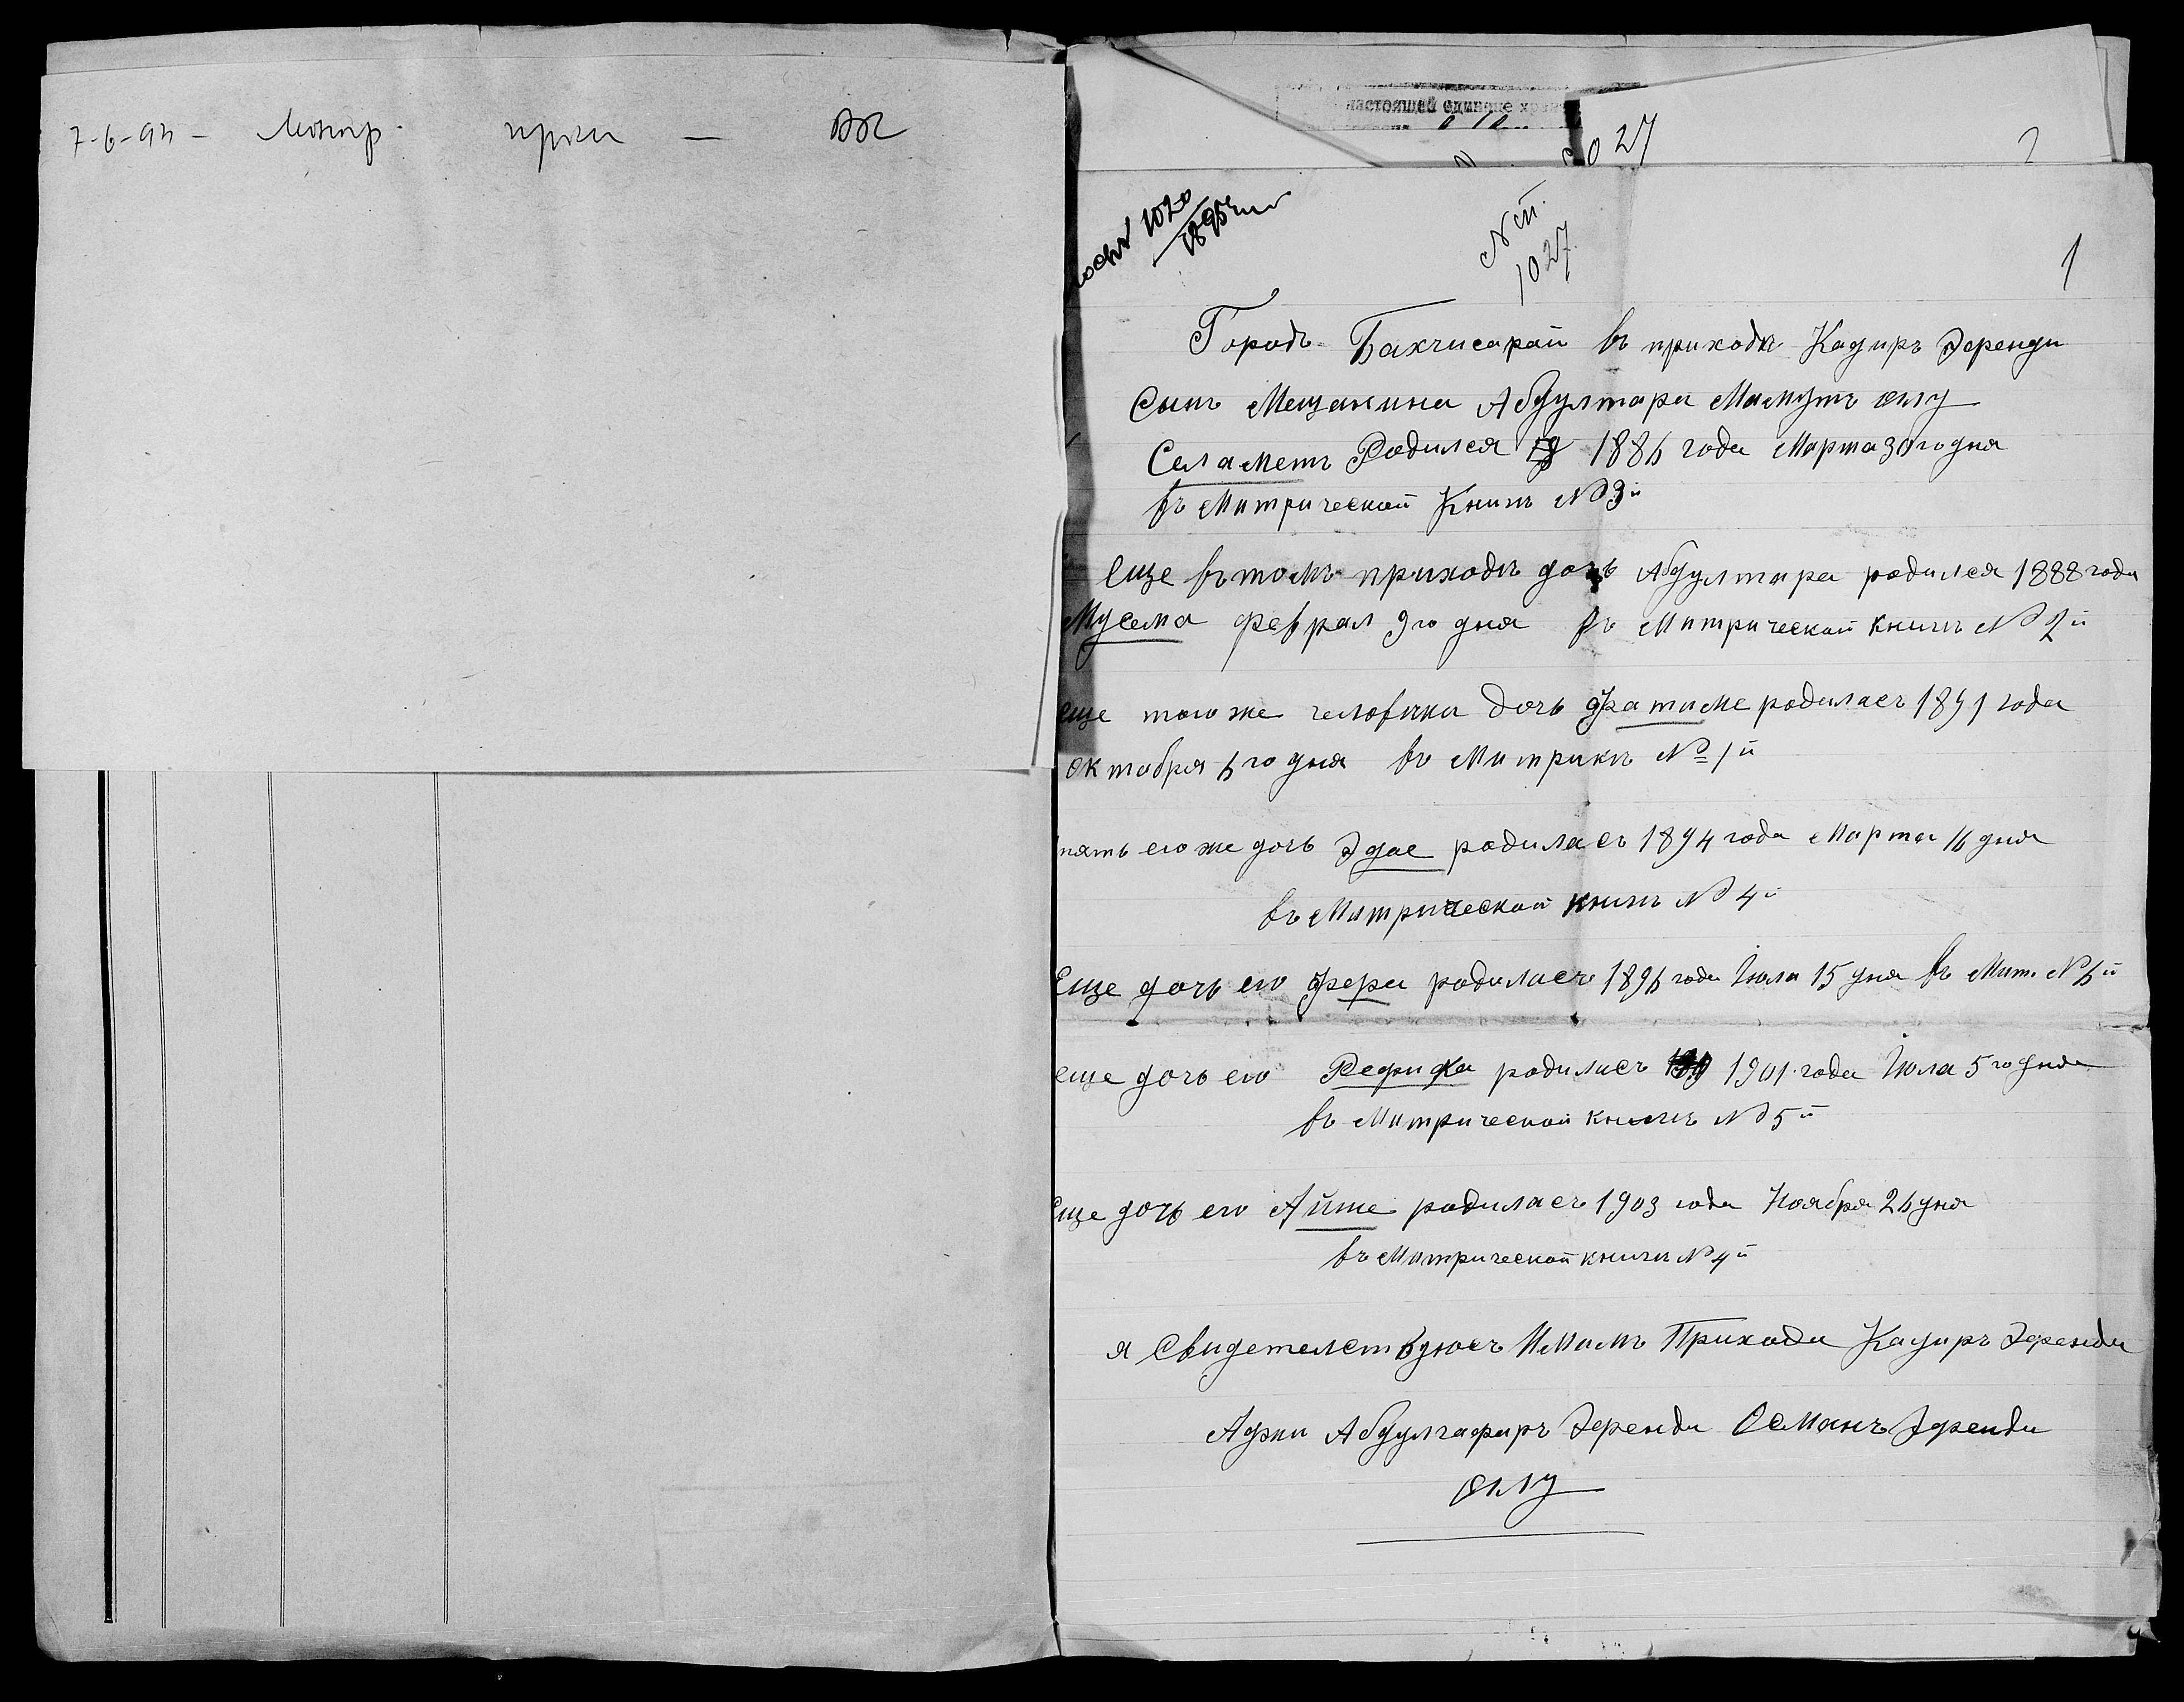 7-6-94 —
настоящей единице
027
2
1020
1895
№ ст.
1027.
1
Городъ Бахчисарай въ приходѣ Кадыръ Эфенди
Сынъ Мещанина Абдултара Мамутъ оглу
Селаметъ Родился 1886 года Марта 30го дня
въ Митрической Книгѣ № 3й
Еще въ томъ приходѣ дочь Абдултара родился 1888 года
Мусема феврал 9го дня въ Митрической книгѣ № 2й
еще того же человѣка дочь Фатиме родилась 1891 года
октобря 6го дня въ Митрикѣ № 1й
его же дочь Эдае родилась 1894 года Марта 16 дня
въ Митрической книгѣ № 4й
Еще дочь его Фера родилась 1896 года Июла 15 дня въ Мит. № 6й
еще дочь его Рефика родилась 1901 года Июла 5го дня
въ Митрической книгѣ № 5й
Еще дочь его Айше родилась 1903 года Ноября 26 дня
въ Митрической книги № 4й
я Свидетелствуюсъ Имамъ Прихода Кадыръ Эфенди
Абдулгафаръ Эфенди Османъ Эфенди
оглу